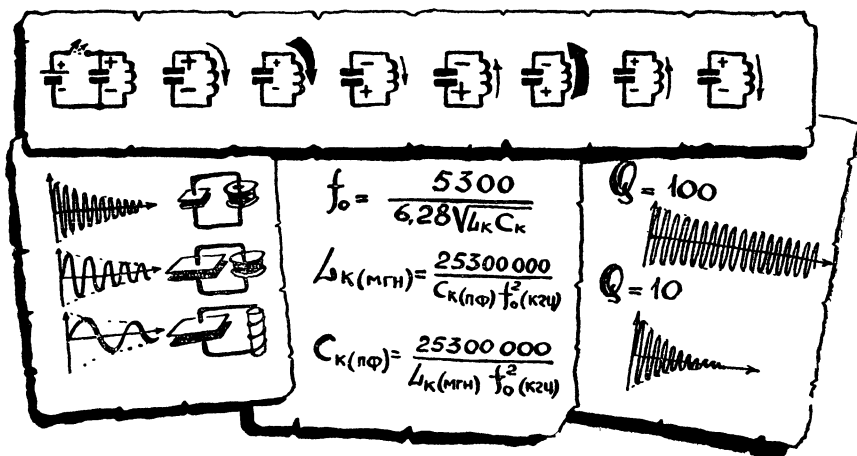 f₀ = 5300 / 6,28√LкCк
Lк(мгн) = 25300000 / Cк(пф) f₀²(кгц)
Cк(пф) = 25300000 / Lк(мгн) f₀²(кгц)
Q = 100
Q = 10